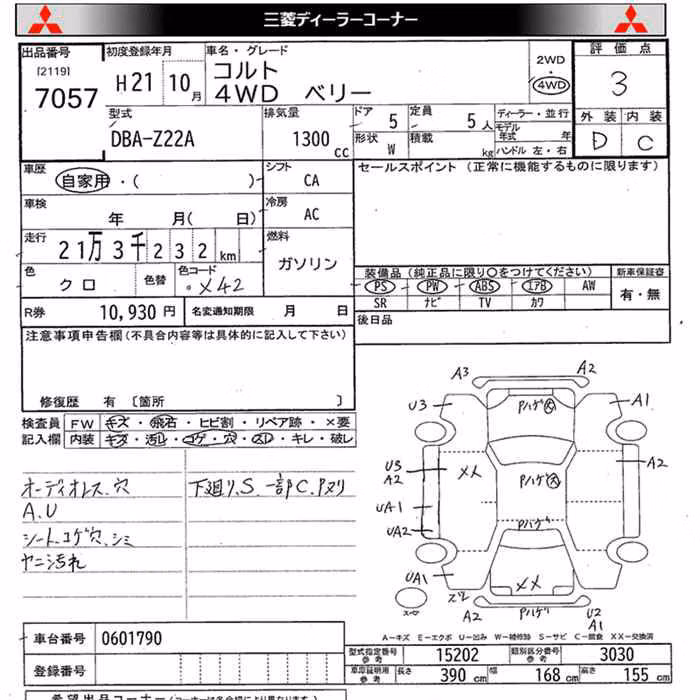 三菱ディーラーコーナー
出品番号 初度登録年月 車名・グレード 2WD・4WD 評価点
[2119] 7057 H21 10月 コルト 3
4WD ベリー
型式 排気量 ドア 定員 ディーラー・並行 外装 内装
DBA-Z22A 1300cc 5 5人 モデル年式 年 D C
形状 W 積載 kg ハンドル 左・右
車歴 自家用・( ) シフト CA セールスポイント (正常に機能するものに限ります)
車検 年 月( 日) 冷房 AC
走行 21万3千232km 燃料 ガソリン
色 クロ 色替 色コード X42 装備品 (純正品に限り○をつけてください) 新車保証書
PS PW ABS エアB AW 有・無
SR ナビ TV カワ
R券 10,930円 名変通知期限 月 日 後日品
注意事項申告欄(不具合内容等は具体的に記入して下さい)
修復歴 有 〔箇所 〕
検査員記入欄 FW キズ・飛石・ヒビ割・リペア跡・×要
内装 キズ・汚レ・コゲ・穴・スレ・キレ・破レ
オーディオレス.穴 下廻り.S.一部C.Pヌリ
A.U
シート.コゲ穴.シミ
ヤニ汚れ
A3 A2
U3 Pハゲ大 A1
U3 A2 メメ Pハゲ大 A2
UA1
UA2 Pハゲ
UA1 メメ
A2 Pハゲ U2
A1
A-キズ E-エクボ U-凹み W-補修跡 S-サビ C-腐食 XX-交換済
車台番号 0601790 型式指定番号 参考 15202 類別区分番号 参考 3030
登録番号 車庫証明用 参考 長さ 390cm 幅 168cm 高さ 155cm
希望出品コーナー